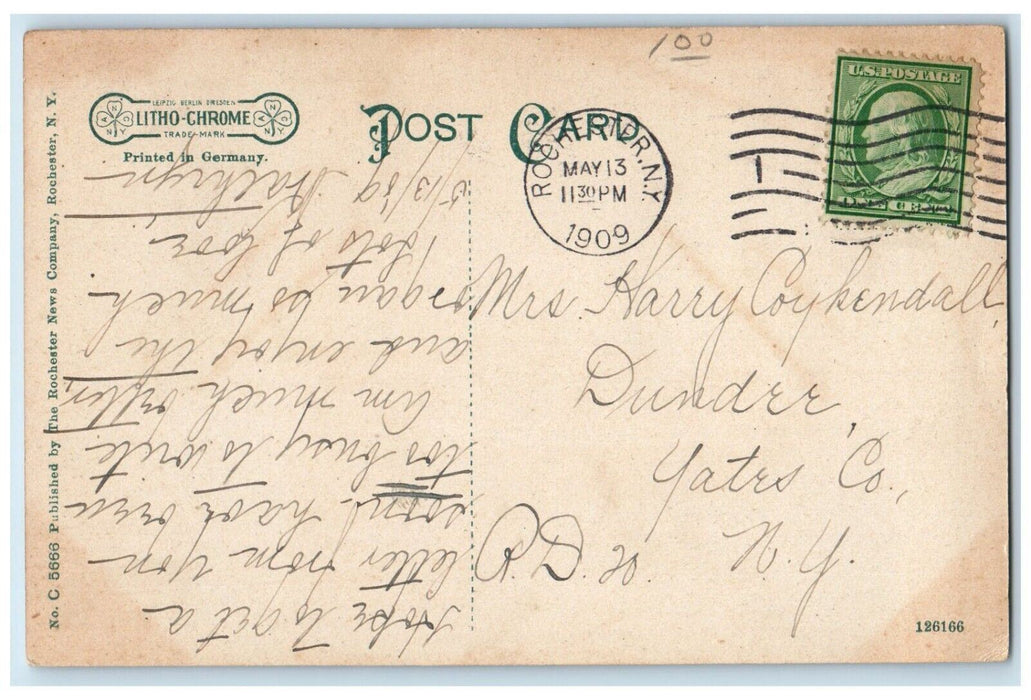 100
LEIPZIG BERLIN DRESDEN
LITHO-CHROME
TRADE-MARK
Printed in Germany.
POST CARD
ROCHESTER, N.Y.
MAY 13
11 30 PM
1909
1
U.S. POSTAGE
Mrs Harry Coykendall,
Dundee
Yates Co,
N.Y.
R.D. 20.
Hope to get a
letter from you
soon. have been
too busy to write
am much better,
and enjoy the
organ so much
Lots of love
5/13/09 Kathryn
No. C 5666 Published by The Rochester News Company, Rochester, N. Y.
126166